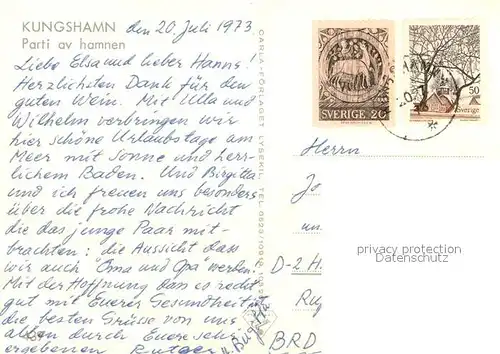 KUNGSHAMN den 20. Juli 1973.
Parti av hamnen
Liebe Elsa und lieber Hanns!
Herzlichsten Dank für den
guten Wein. Mit Ulla und
Wilhelm verbringen wir
hier schöne Urlaubstage am
Meer mit Sonne und herr-
lichem Baden. Und Birgitta
und ich freuen uns besonders
über die frohe Nachricht
die das junge Paar mit-
brachten: die Aussicht dass
wir auch "Oma und Opa" werden.
Mit der Hoffnung dass es recht
gut mit Euerer Gesundheit ist
die besten Grüsse von uns
allen durch Euere sehr
ergebenen Rutger
u. Birgitta
CARLA-FÖRLAGET LYSEKIL. TEL. 0523/
SVERIGE 20
50
Sverige
Herrn
Jo
un
D-2 H
Rug
BRD
privacy protection
Datenschutz